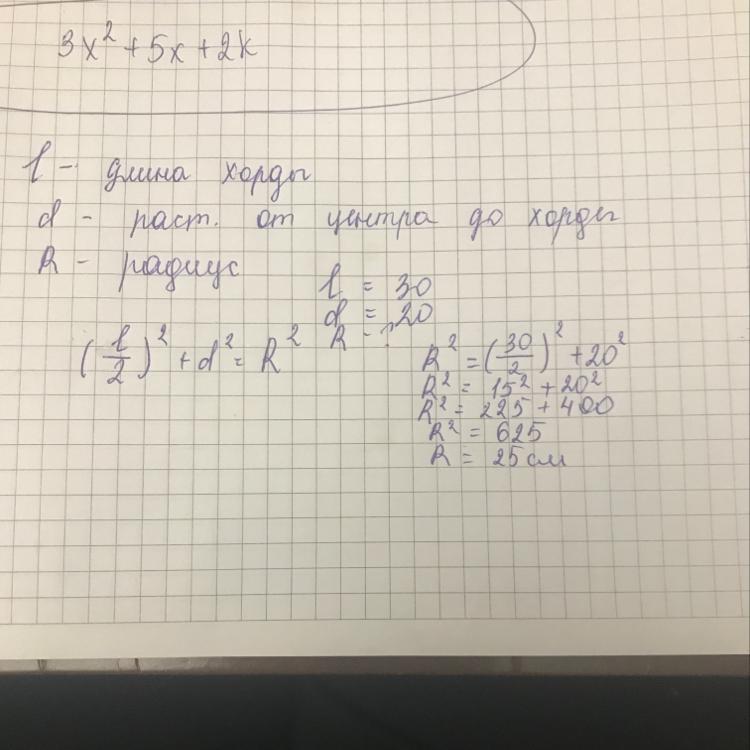 3x² + 5x + 2k
l - длина хорды
d - раст. от центра до хорды
R - радиус
l = 30
d = 20
R - ?
(l/2)² + d² = R²
R² = (30/2)² + 20²
R² = 15² + 20²
R² = 225 + 400
R² = 625
R = 25 см